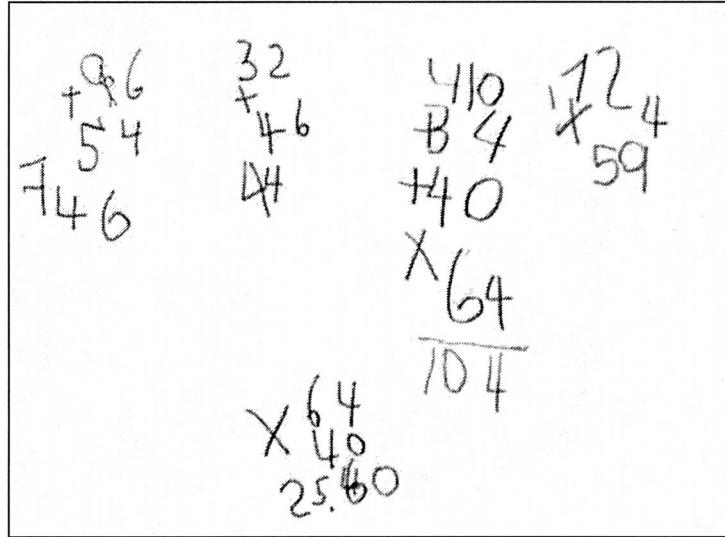 96
+
54
746
32
+
46
44
410
+34
+40
X64
104
172
X 4
59
X 64
40
25.60